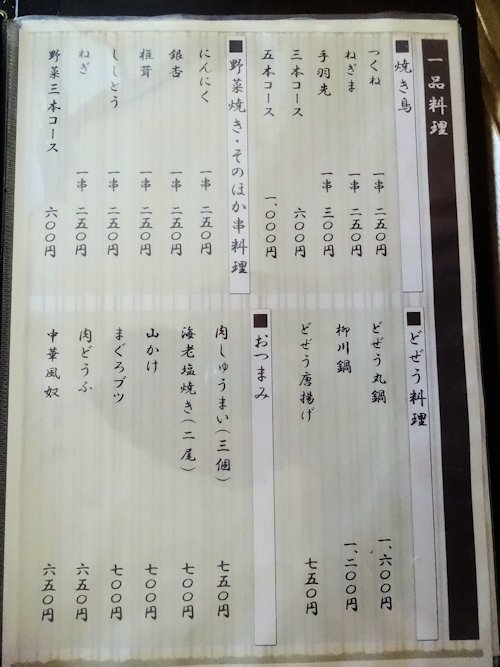 一品料理
■焼き鳥
つくね 一串 二五〇円
ねぎま 一串 二五〇円
手羽先 一串 三〇〇円
三本コース 六〇〇円
五本コース 一、〇〇〇円
■野菜焼き・そのほか串料理
にんにく 一串 二五〇円
銀杏 一串 二五〇円
椎茸 一串 二五〇円
ししとう 一串 二五〇円
ねぎ 一串 二五〇円
野菜三本コース 六〇〇円
■どぜう料理
どぜう丸鍋 一、六〇〇円
柳川鍋 一、二〇〇円
どぜう唐揚げ 七五〇円
■おつまみ
肉しゅうまい(三個) 七五〇円
海老塩焼き(二尾) 七〇〇円
山かけ 七〇〇円
まぐろブツ 七〇〇円
肉どうふ 六五〇円
中華風奴 六五〇円